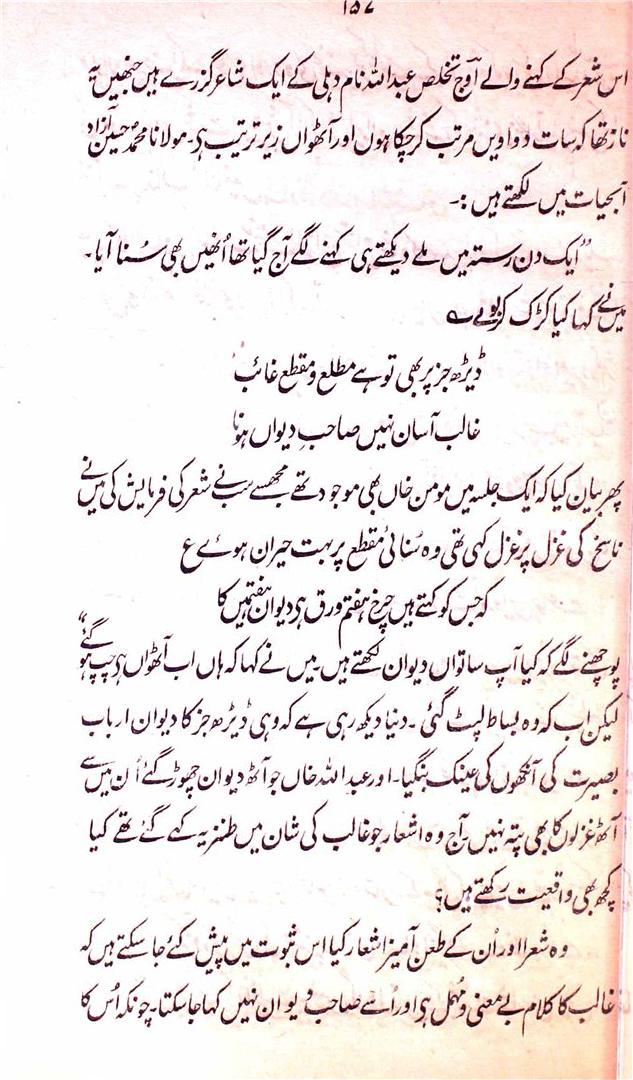 ۱۵۷
اس شعر کے کہنے والے اوج تخلص عبداللہ نام دہلی کے ایک شاعر گزرے ہیں جنھیں یہ
ناز تھا کہ سات دواویں مرتب کر چکا ہوں اور آٹھواں زیر ترتیب ہے۔ مولانا محمد حسین آزاد
آبحیات میں لکھتے ہیں :۔
"ایک دن رستہ میں ملے دیکھتے ہی کہنے لگے آج گیا تھا اُنھیں بھی سُنا آیا۔
میں نے کہا کیا کڑک کر بولے ؎
ڈیڑھ جز پر بھی تو ہے مطلع و مقطع غائب
غالب آسان نہیں صاحبِ دیواں ہونا
پھر بیان کیا کہ ایک جلسہ میں مومن خاں بھی موجود تھے مجھسے سب نے شعر کی فرمایش کی میں نے
ناسخ کی غزل پر غزل کہی تھی وہ سُنائی مقطع پر بہت حیران ہوئے ع
کہ جس کو کہتے ہیں چرخ ہفتم ورق ہے دیوان ہفتمیں کا
پوچھنے لگے کہ کیا آپ ساتواں دیوان لکھتے ہیں۔ میں نے کہا کہ ہاں اب آٹھواں ہے چپ ہو گئے"
لیکن اب کہ وہ بساط لپٹ گئی۔ دنیا دیکھ رہی ہے کہ وہی ڈیڑھ جز کا دیوان ارباب
بصیرت کی آنکھوں کی عینک بنگیا۔ اور عبداللہ خاں جو آٹھ دیوان چھوڑ گئے اُن میں سے
آٹھ غزلوں کا بھی پتہ نہیں۔ آج وہ اشعار جو غالب کی شان میں طنزیہ کہے گئے تھے کیا
کچھ بھی واقعیت رکھتے ہیں؟
وہ شعرا اور اُن کے طعن آمیز اشعار کیا اس ثبوت میں پیش کئے جا سکتے ہیں کہ
غالب کا کلام بے معنی و مُہمل ہے اور اُسے صاحب دیوان نہیں کہا جا سکتا۔ چونکہ اُس کا